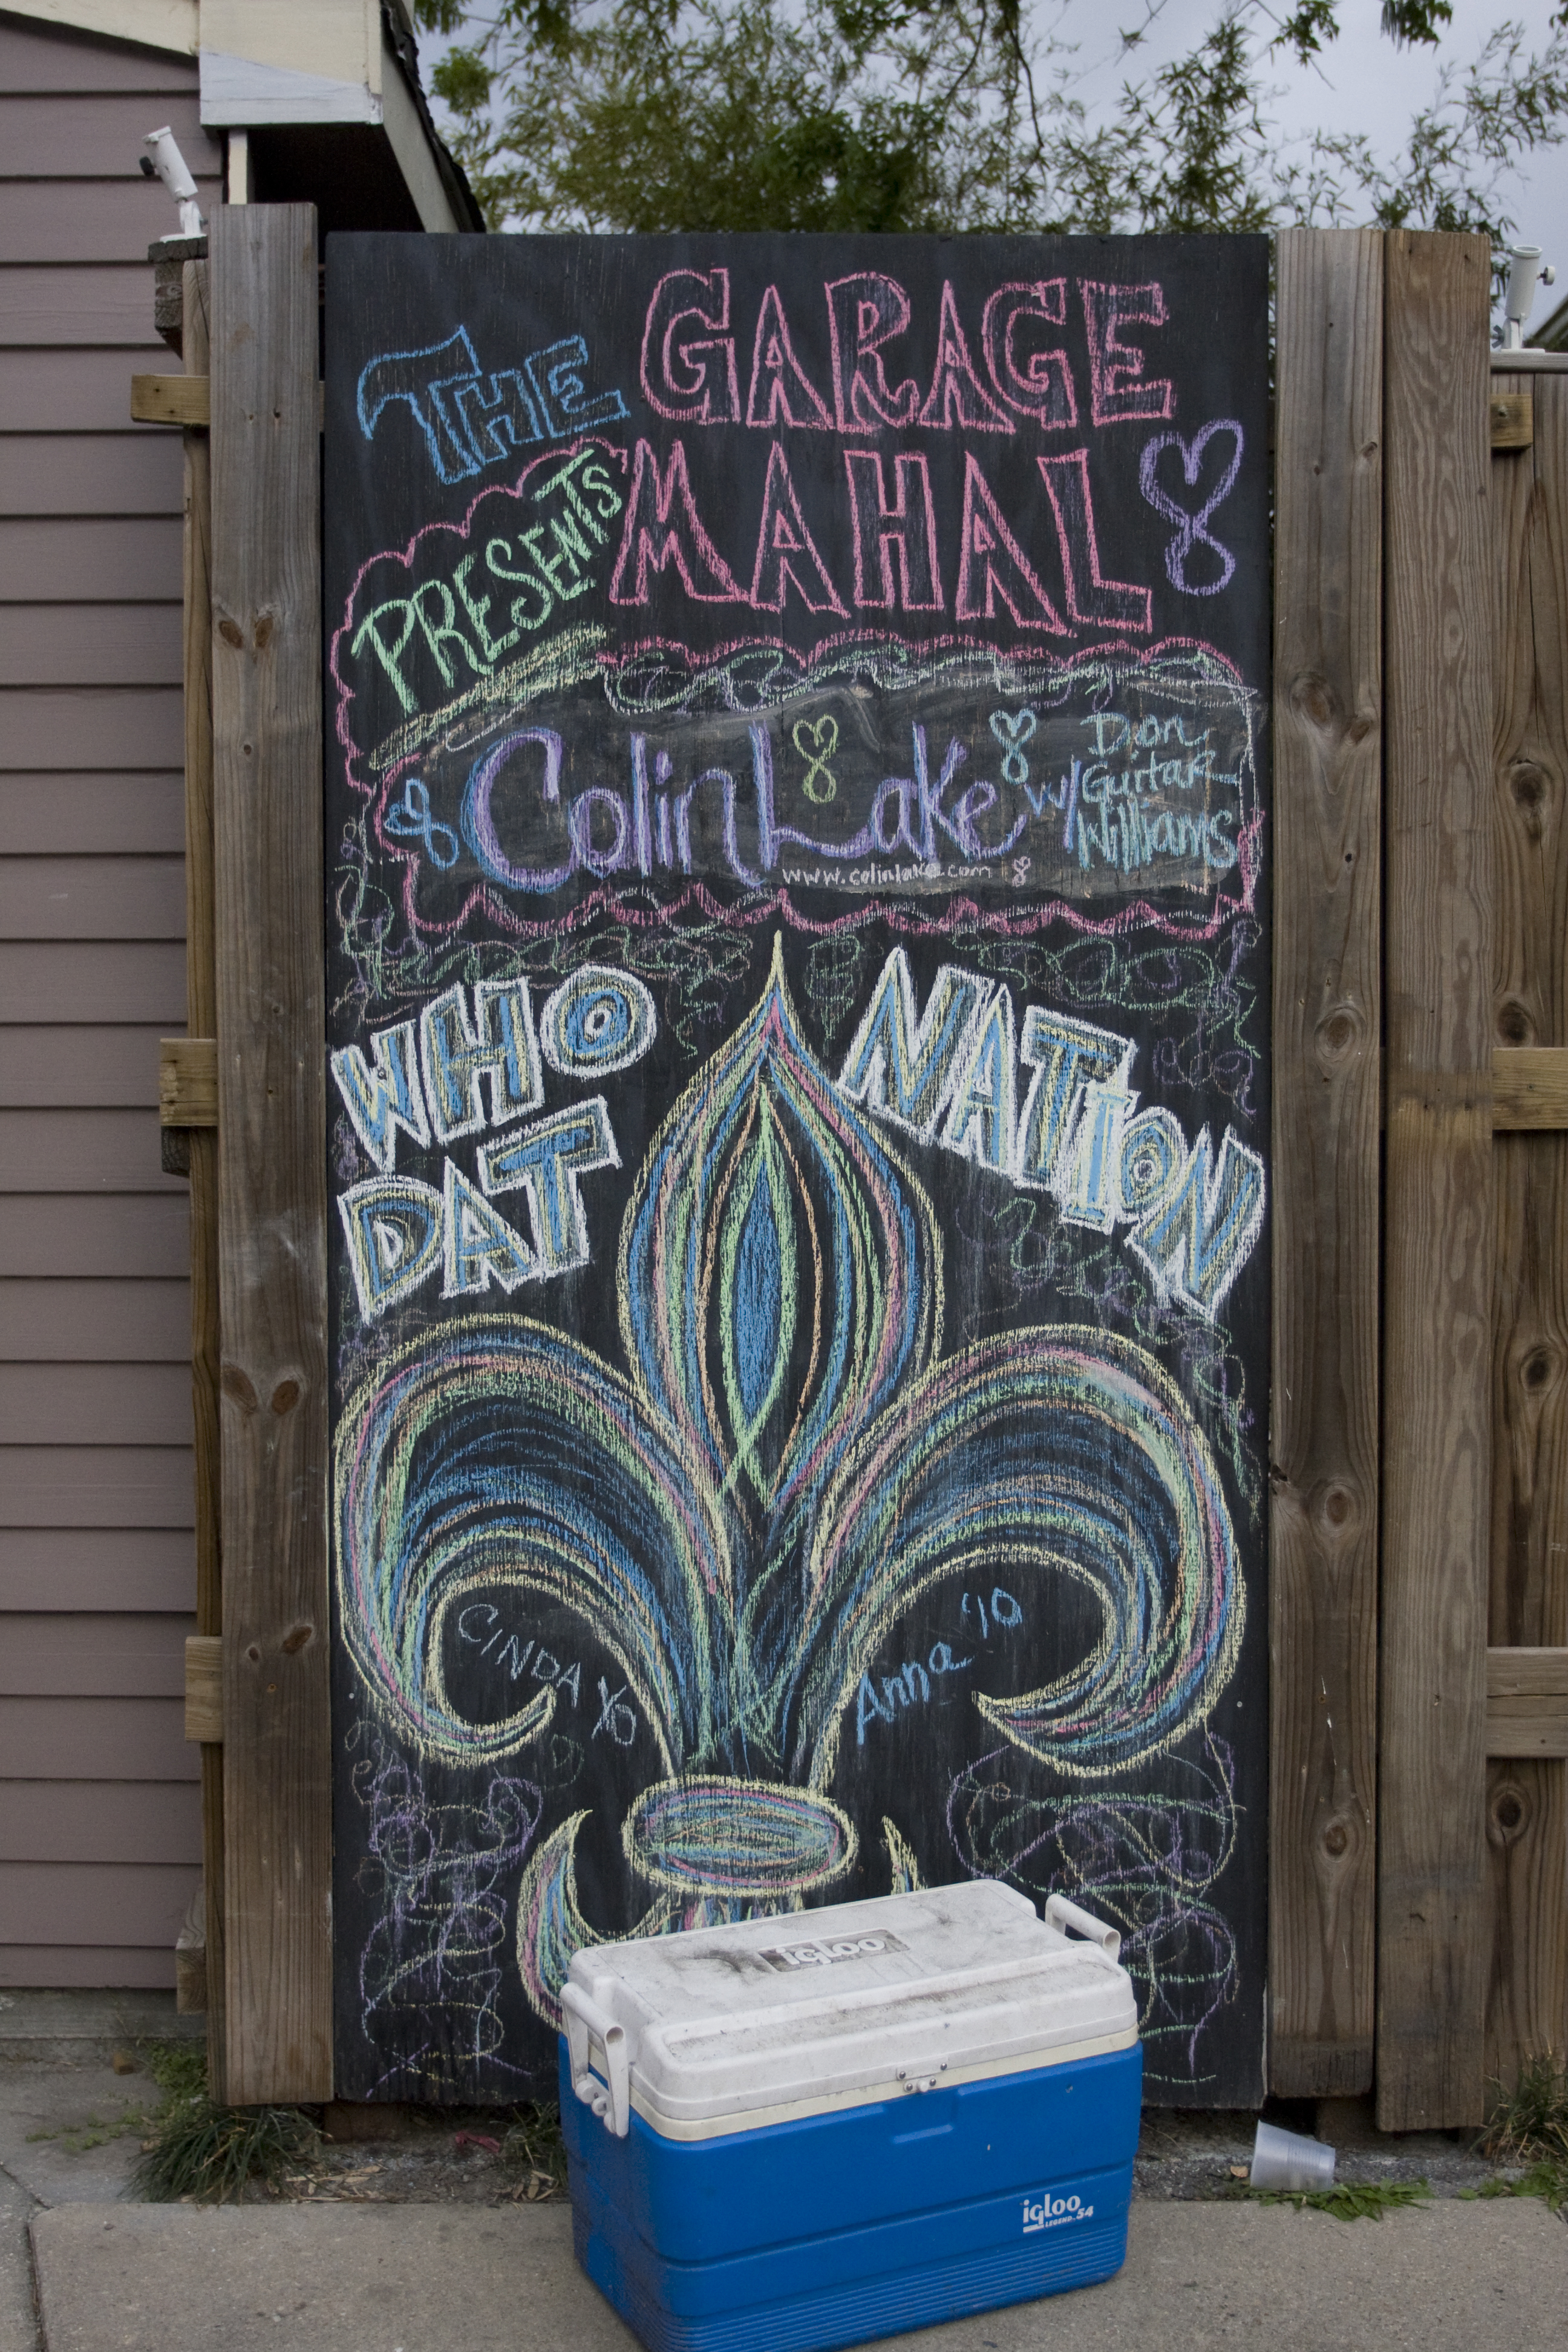 THE GARAGE
PRESENTS MAHAL
Colin Lake w/ Dion
Guitar
Williams
www.colinlake.com
WHO
DAT
NATION
CINDA YO
Anna '10
igloo
igloo
LEGEND 54